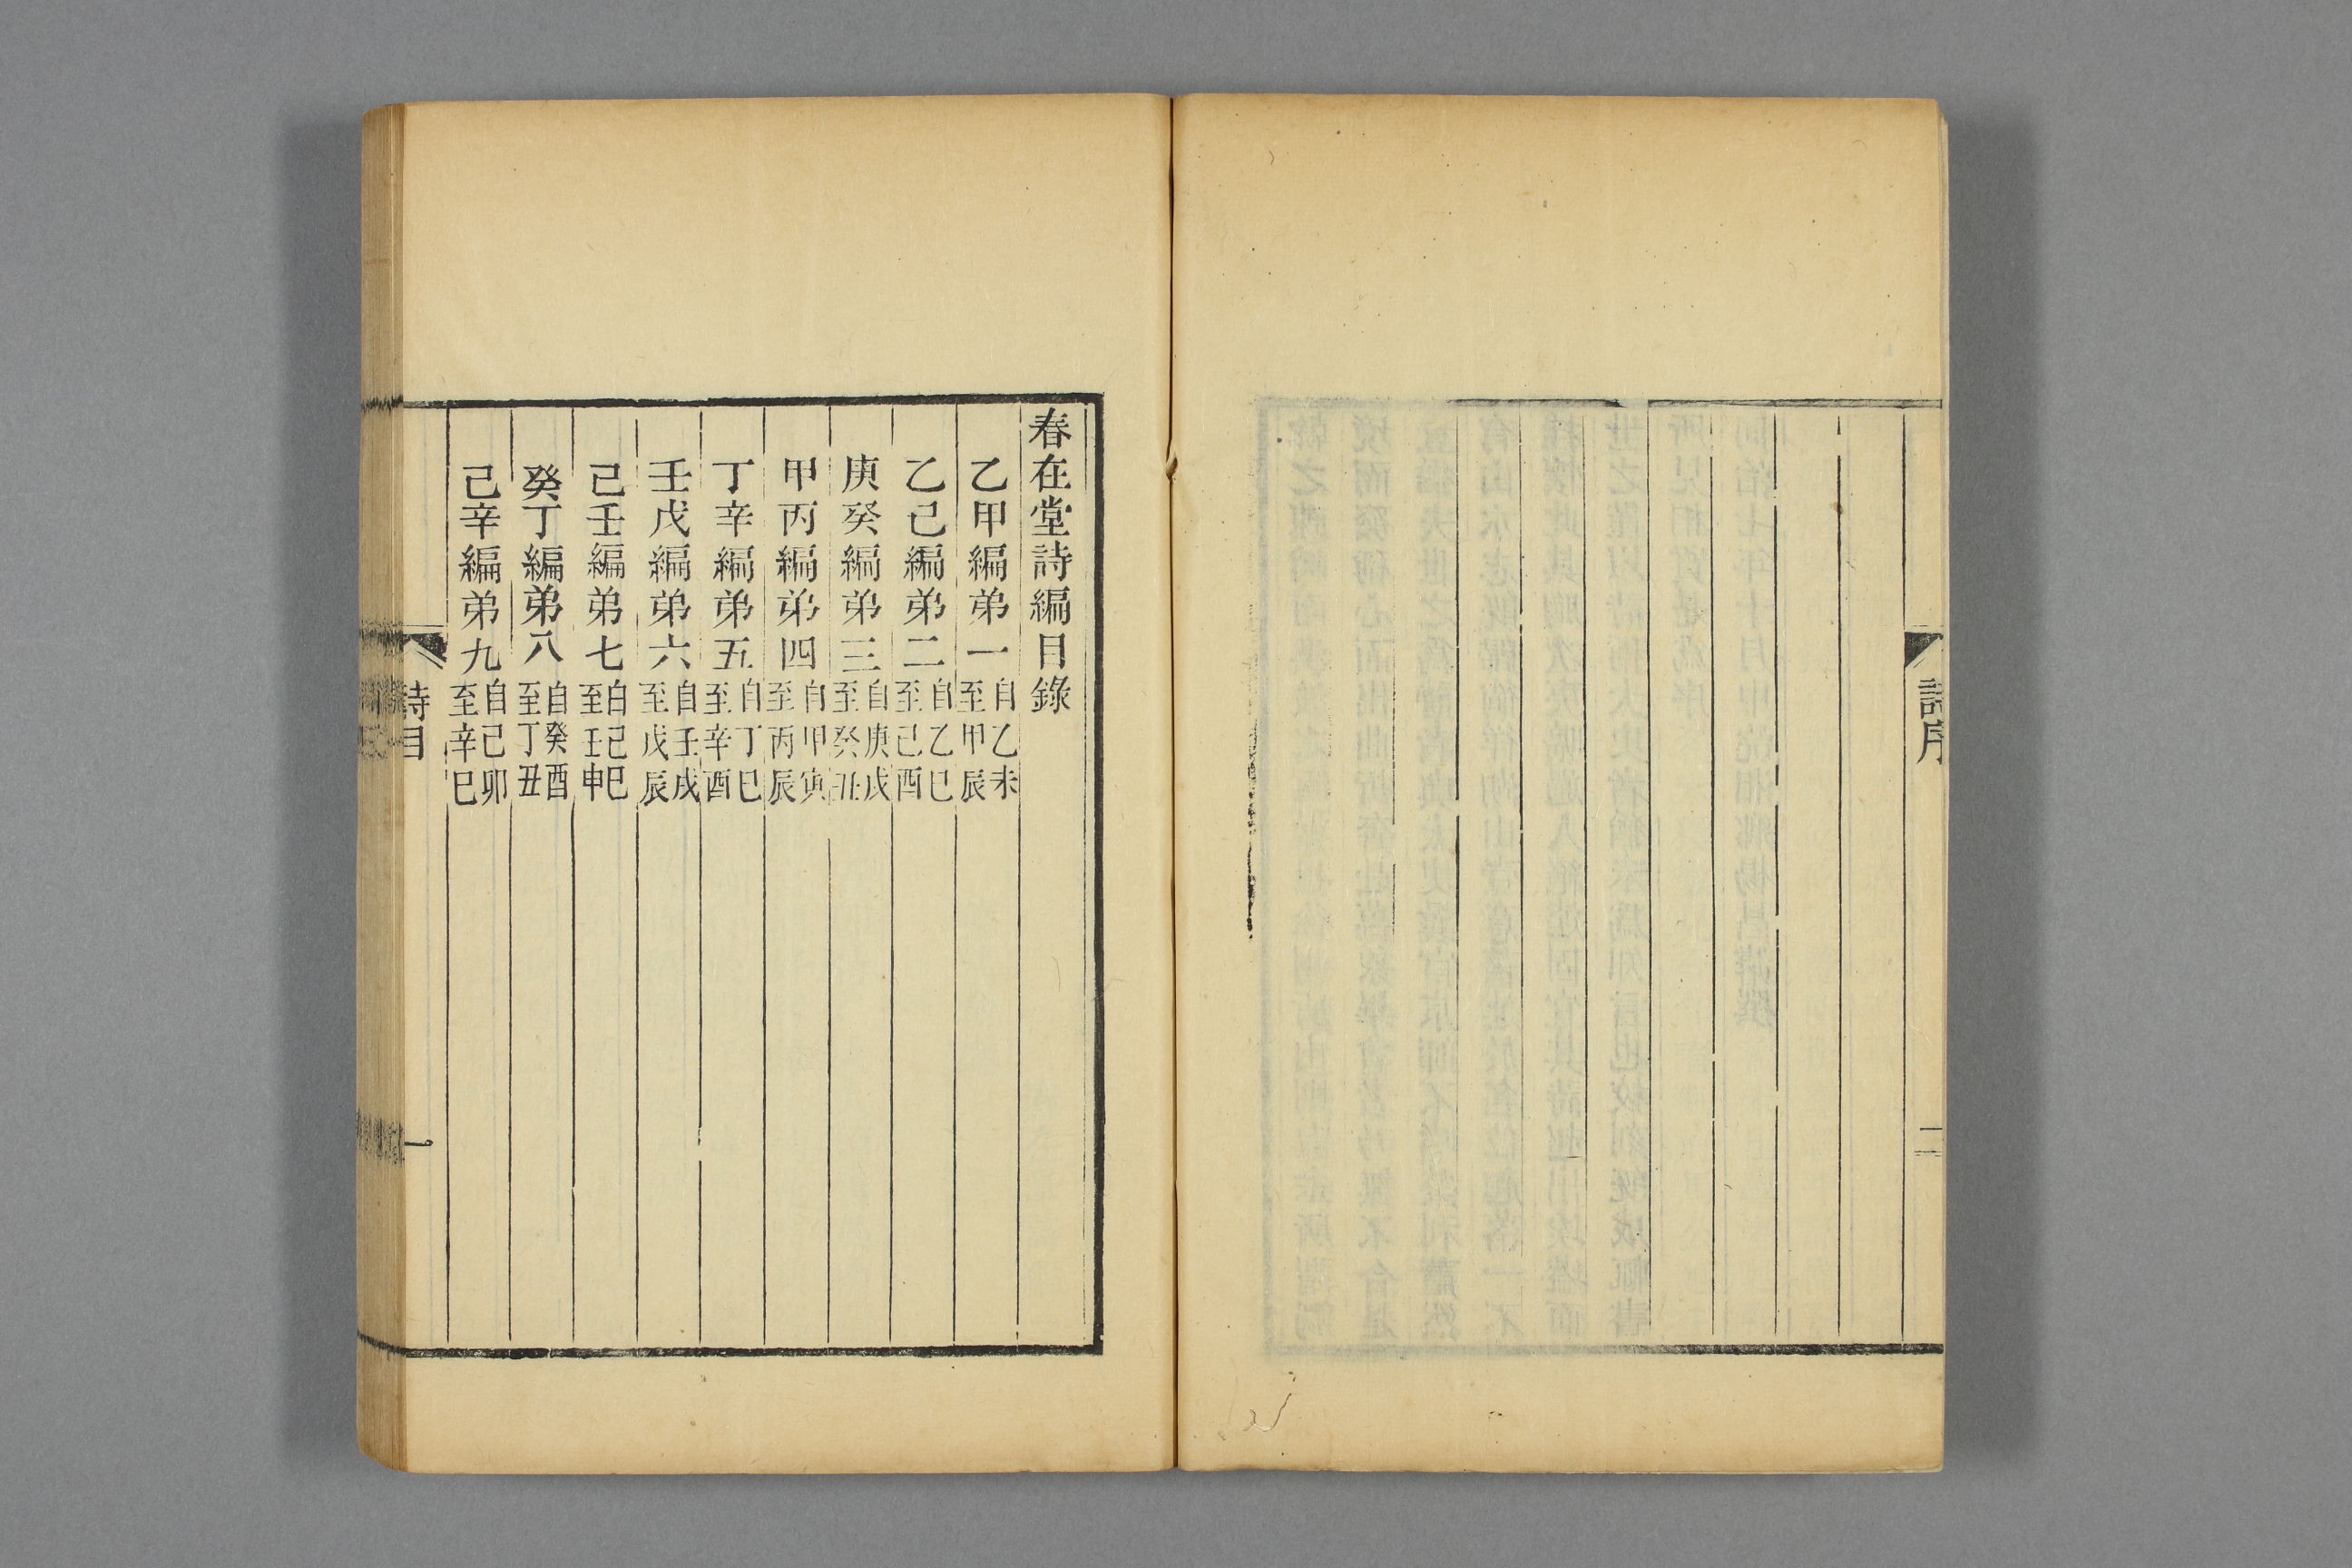 詩序
二
春在堂詩編目錄
乙甲編弟一自乙未至甲辰
乙己編弟二自乙巳至己酉
庚癸編弟三自庚戌至癸丑
甲丙編弟四自甲寅至丙辰
丁辛編弟五自丁巳至辛酉
壬戊編弟六自壬戌至戊辰
己壬編弟七自己巳至壬申
癸丁編弟八自癸酉至丁丑
己辛編弟九自己卯至辛巳
詩目
一